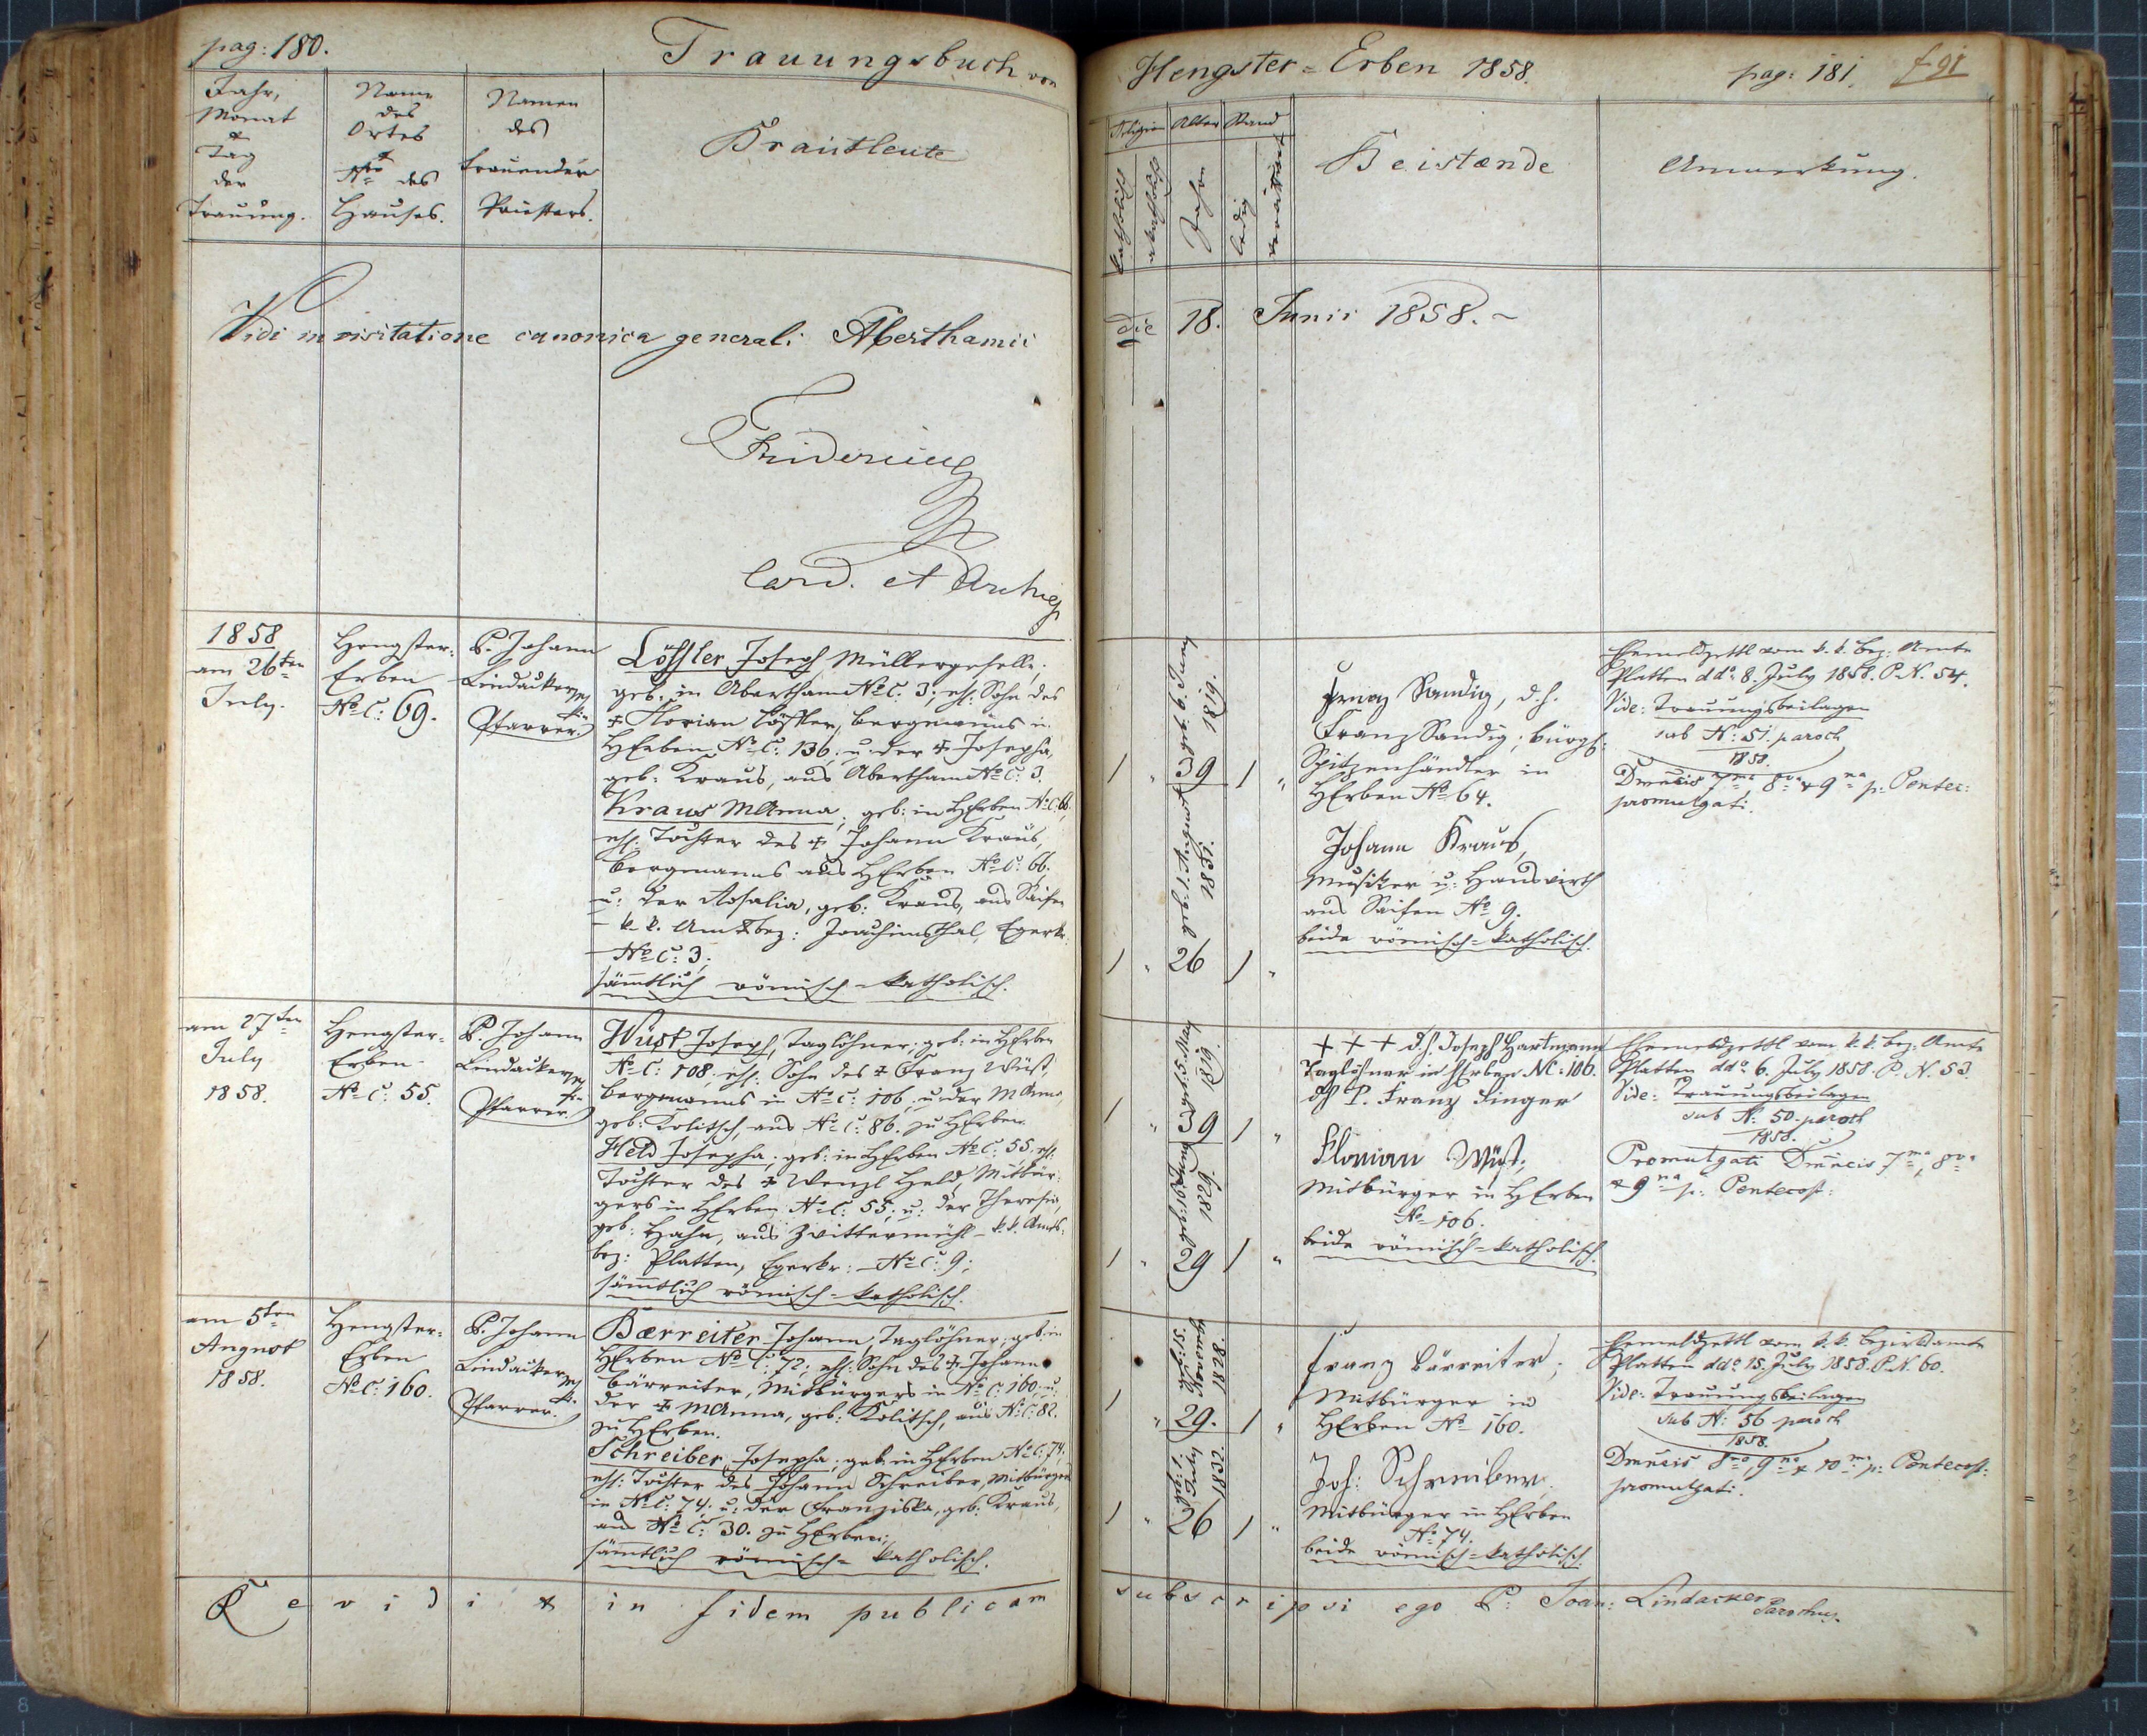 pag: 180.
Trauungsbuch von
Jahr,
Monat
&
Tag
der
Trauung.
Name
des
Ortes
&
Nro des
Hauses.
Namen
des
trauenden
Priesters.
Brautleute
Vidi in visitatione canonica generali Aberthamii
Fridericus
Card. et Archiep
1858
am 26ten
July.
Hengster-
Erben
No C: 69.
P. Johann
Lindacker
Pfarrer.
Löffler Joseph, Müllergeselle;
geb. in Abertham No C. 3; ehl. Sohn des
† Florian Löffler, Bergmanns in
HErben No C: 136; u: der † Josepha,
geb: Kraus, aus Abertham No C: 3.
Kraus MAnna, geb: in HErben No C: 66,
ehl. Tochter des † Johann Kraus,
Bergmanns aus HErben No C: 66.
u: der Rosalia, geb: Kraus, aus Seifen
- k. k. Amtsbez: Joachimsthal, Egerkr:
- No C: 3;
sämmtlich römisch-katholisch.
am 27ten
July
1858.
Hengster-
Erben
No C: 55.
P. Johann
Lindacker
Pfarrer.
Wüst Joseph, Taglöhner; geb: in HErben
No C: 108; ehl: Sohn des † Franz Wüst,
Bergmanns in No C: 106, u: der MAnna
geb: Kolitsch, aus No C: 86. zu HErben.
Held Josepha, geb: in HErben No C: 55, ehl:
Tochter des † Wenzl Held, Mitbür-
gers in HErben No C: 55; u: der Theresia,
geb: Hahn, aus Zwittermühl - k. k. Amts-
bez: Platten, Egerkr: - No C: 9;
sämmtlich römisch-katholisch.
am 5ten
August
1858.
Hengster-
Erben
No C: 160.
P. Johann
Lindacker
Pfarrer.
Bærreiter Johann, Taglöhner; geb: in
HErben No C: 72; ehl: Sohn des † Johann
Bärreiter, Mitbürgers in No C: 160, u:
der † MAnna, geb: Kolitsch, aus No C: 82.
zu HErben.
Schreiber Josepha; geb: in HErben No C: 74;
ehl: Tochter des Johann Schreiber, Mitbürgers
in No C: 74. u: der Franziska, geb: Kraus,
aus No C: 30. zu HErben;
sämmtlich römisch-katholisch.
Revidi & in fidem publicam
Hengster-Erben 1858.
pag: 181.
f 91
Religion Alter Stand
katholisch
akatholisch
Jahre
ledig
verwittwet
Beistænde
Anmerkung.
die 18. Junii 1858.
1 " 39 1 "
geb: 6. Juny
1819.
1 " 26 1 "
geb: 1. August
1831.
Ignaz Sandig, d.h.
Franz Sandig; bürgl:
Spitzenhändler in
HErben No 64.
Johann Kraus,
Musiker u: Hauswirth
aus Seifen No 9.
beide römisch-katholisch.
Ehemeldzettl vom k. k. Bez: Amte
Platten ddo 8. July 1858. P. N. 54.
Vide: Trauungsbeilagen
sub N: 51. paroch
1858.
Dmncis 7ma, 8va & 9na p: Pentec:
promulgati.
1 " 39 1 "
geb: 5. May
1819.
1 " 29 1 "
1829.
+ + + d.h. Joseph Hartmann
Taglöhner in HErben NC: 106.
dh P. Franz Finger
Florian Wüst;
Mitbürger in HErben
No 106.
beide römisch-katholisch.
Ehemeldzettl vom k. k. Bez: Amte
Platten ddo 6. July 1858. P. N. 53.
Vide: Trauungsbeilagen
sub N: 50. paroch
1858.
Promulgati Dmncis 7ma, 8va
& 9na p: Pentecost:
1 " 29. 1 "
1828.
1 " 26 1 "
geb: 1. July
1832.
Franz Bärreiter;
Mitbürger in
HErben No 160.
Joh: Schreiber
Mitbürger in HErben
No 74.
beide römisch-katholisch.
Ehemeldzettl vom k. k. Bezirksamte
Platten ddo 15. July 1858. P. N. 60.
Vide: Trauungsbeilagen
sub N: 56 paroch
1858.
Dmncis 8va, 9na & 10ma p: Pentecost:
promulgati.
subscripsi ego P: Joan: Lindacker
Parochus.